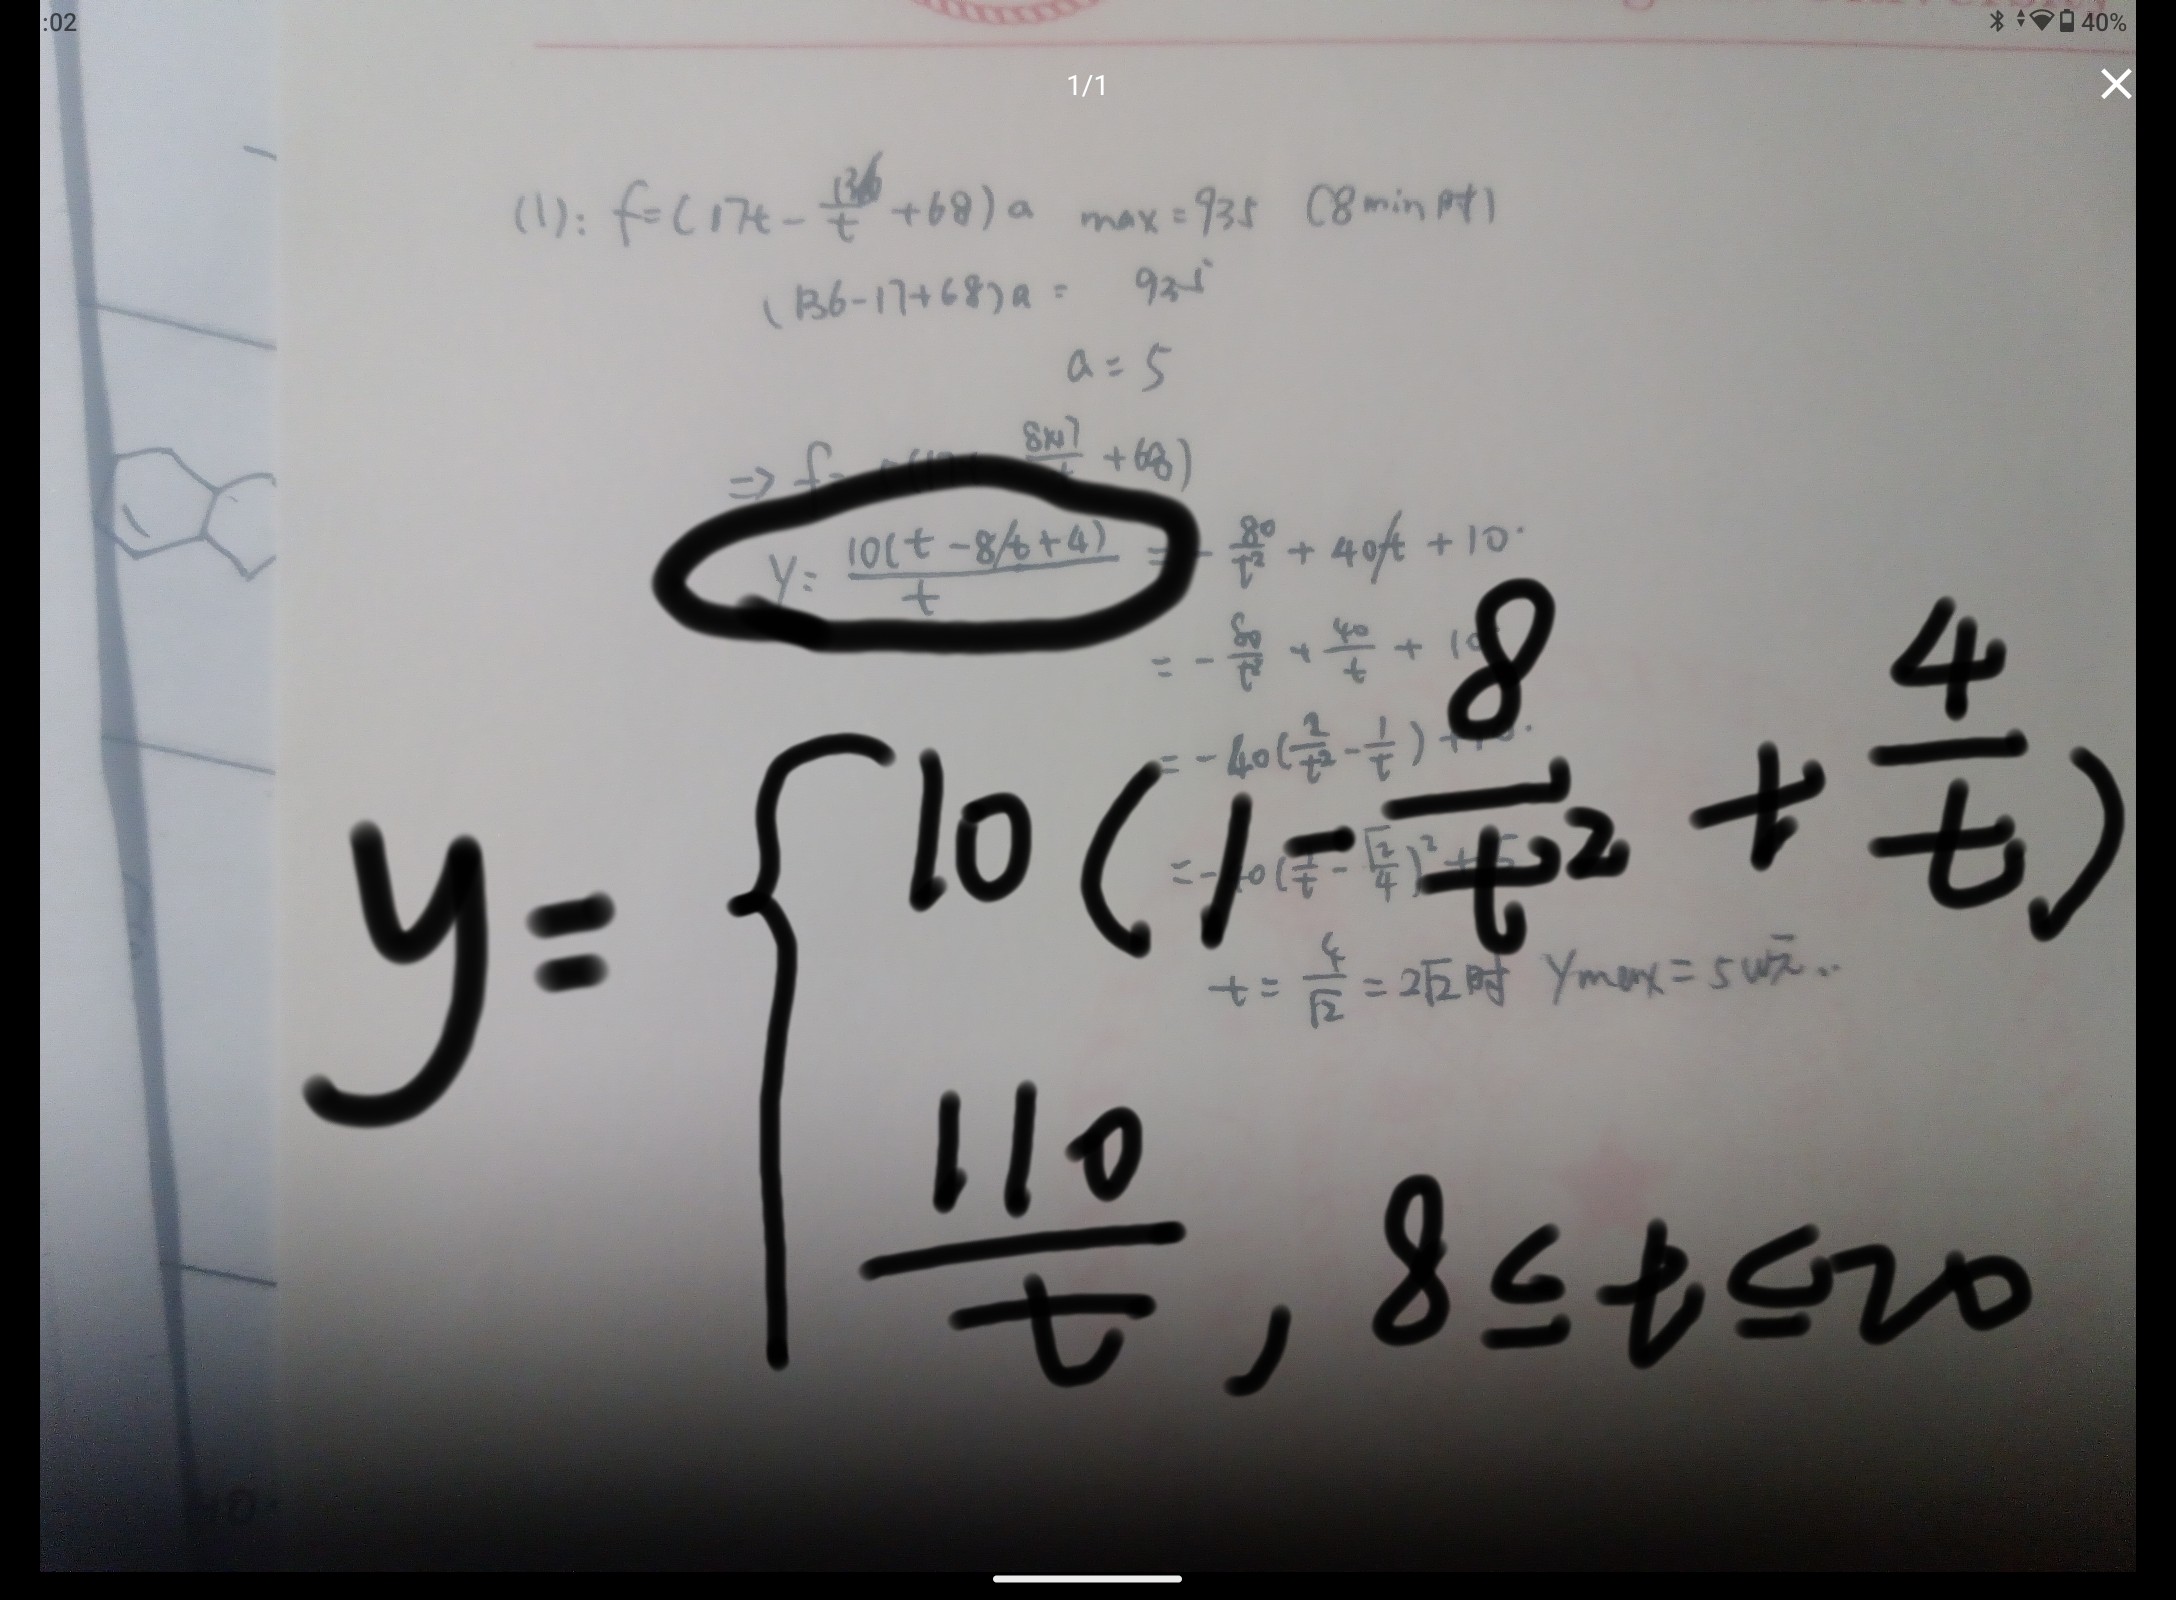 :02
40%
1/1
(1): f=(17t - 136/t +68)a max=935 (8min时)
(136-17+68)a = 935
a = 5
⇒ f= 8×17 +68)
y= 10(t-8/t+4)/t = - 80/t² + 40/t + 10.
= - 80/t² + 40/t + 10
= -40(2/t² - 1/t) +10.
= - 0(1/t - √2/4)² + 5
t = 4/√2 = 2√2时 Ymax = 5w元..
y= { 10(1 - 8/t² + 4/t)
110/t , 8≤t≤20